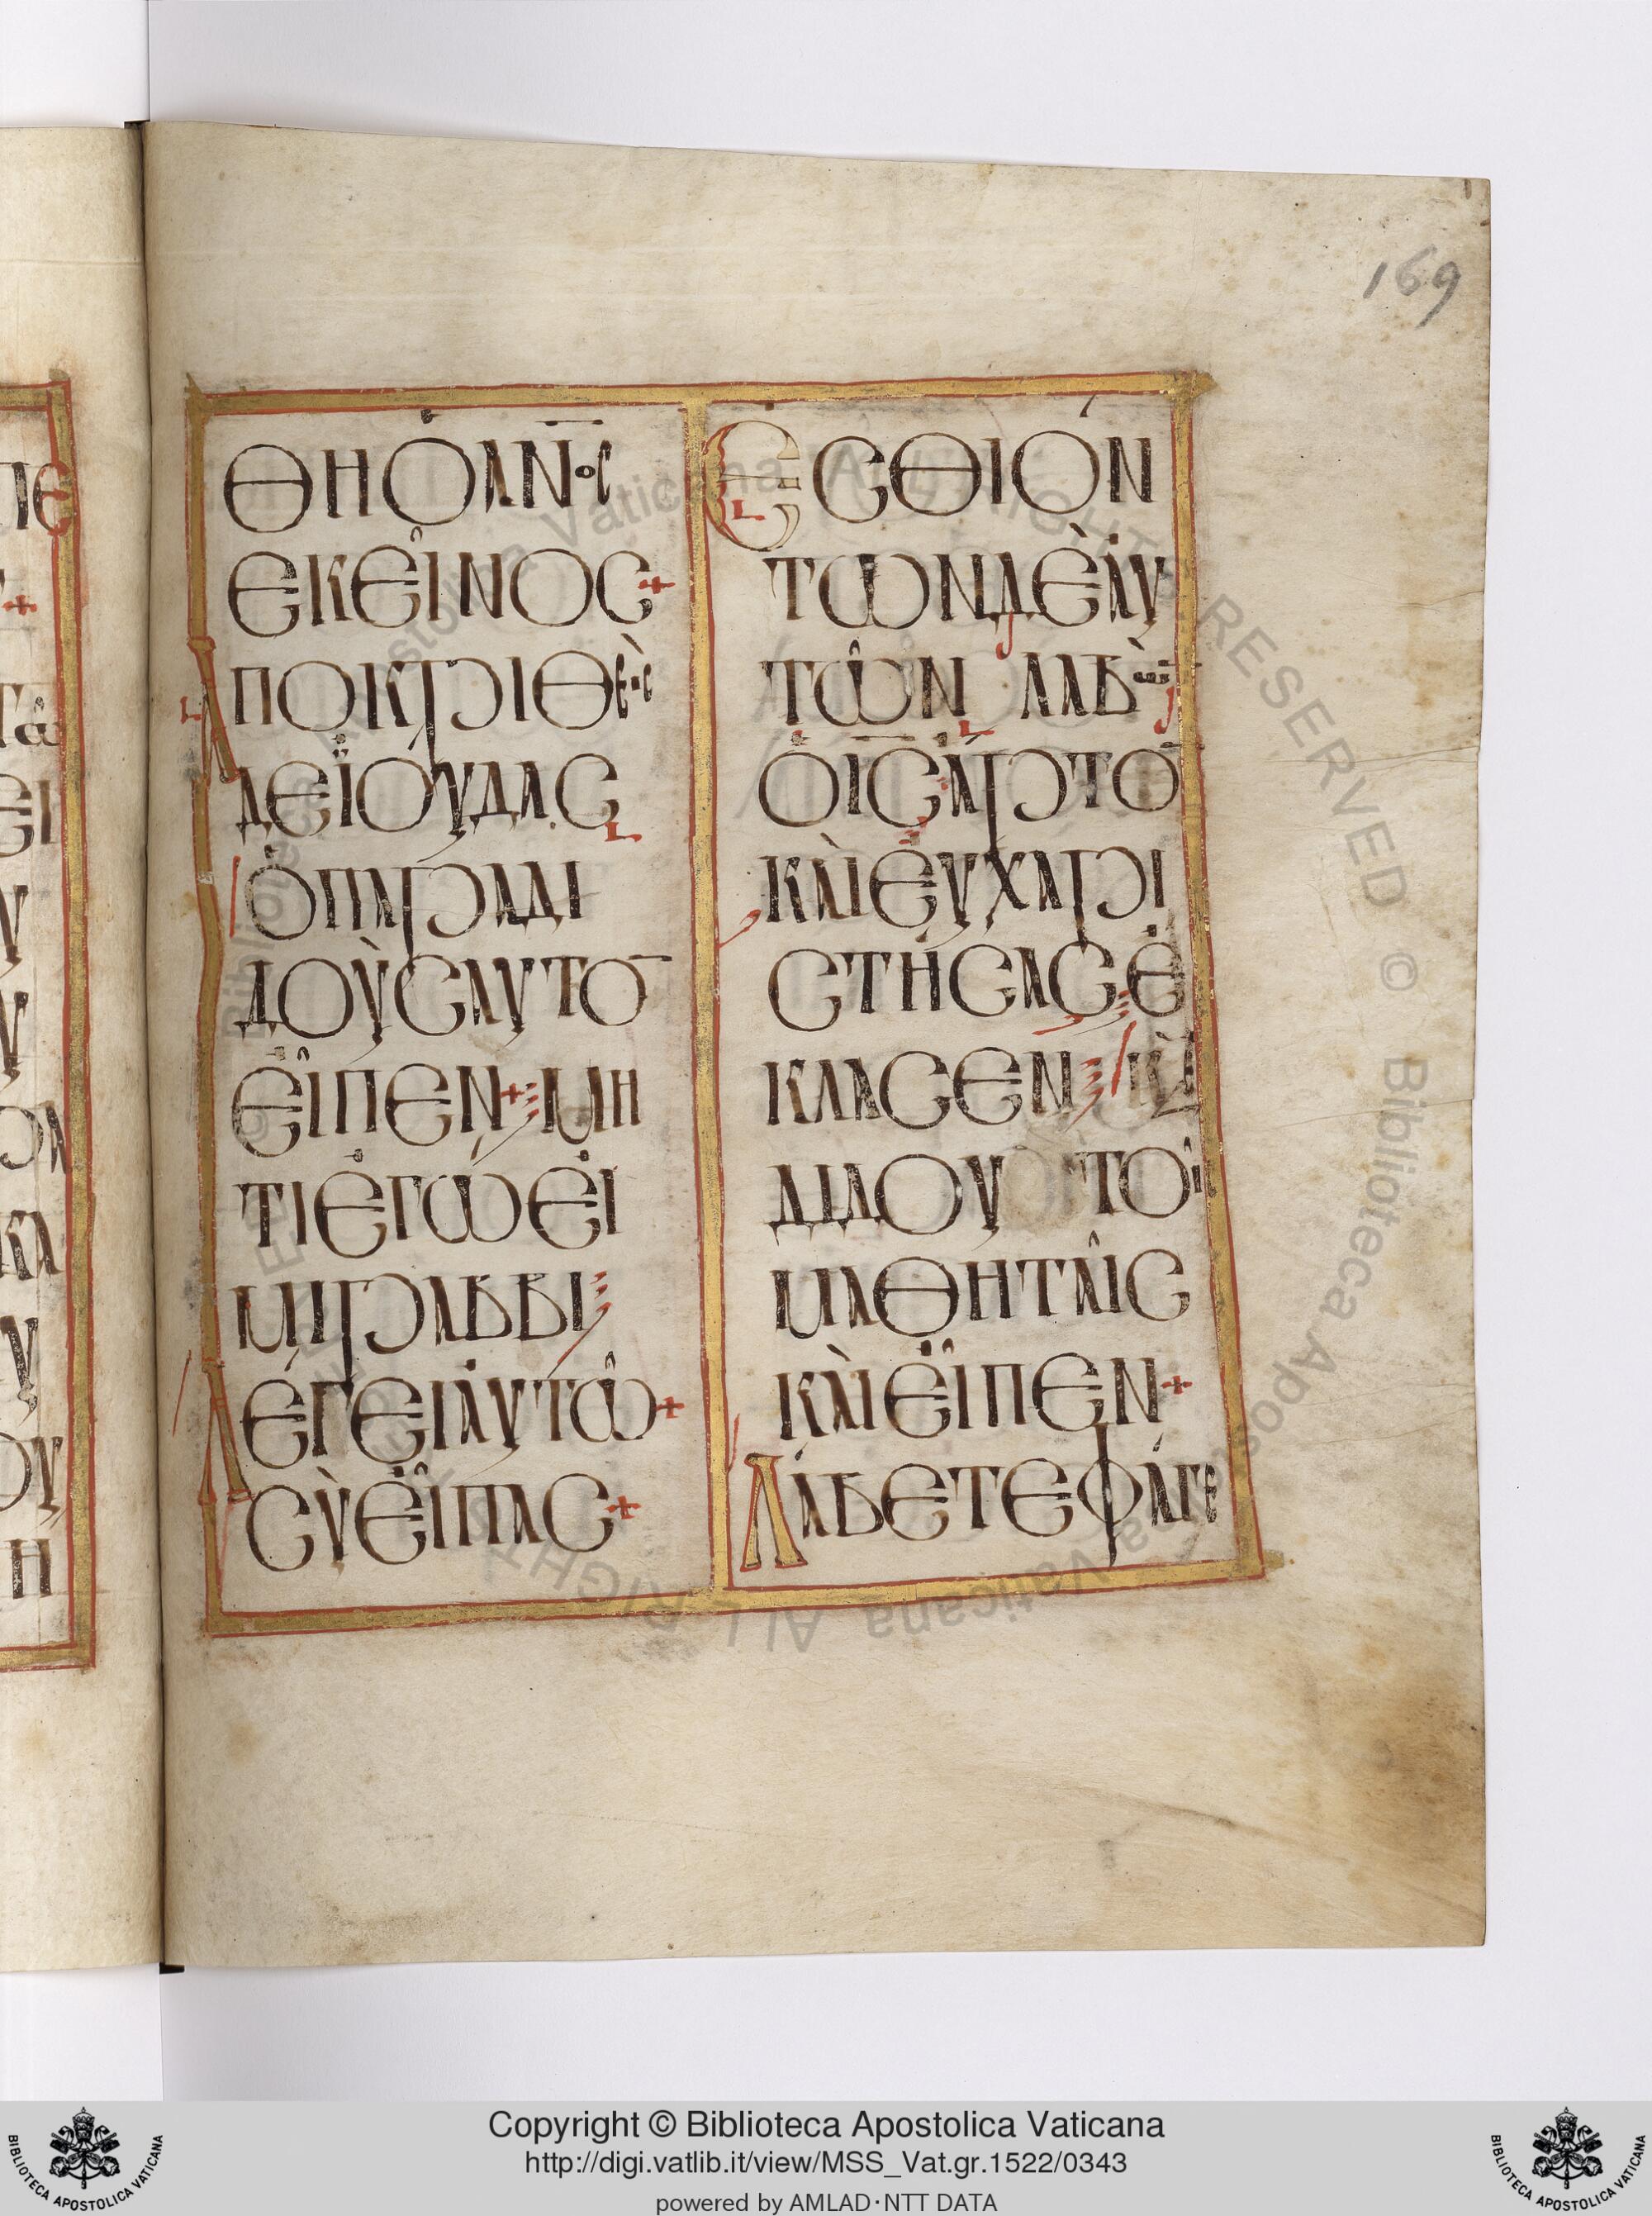 169
ΘΗ Ὁ ΑΝ̅Ο̅Σ
ΕΚΕΙ͂ΝΟΣ+
ἈΠΟΚΡΙΘΕῚΣ
ΔΕ ἸΟΥΔΑΣ
Ὁ ΠΑΡΑΔΙ
ΔΟῪΣ ΑΥΤΟ̅
ΕἾΠΕΝ+ ΜΗ
ΤΙ ἘΓΏ ΕἸ
ΜΙ ΡΑΒΒΙ
ΛΈΓΕΙ ἈΥΤΩ͂+
ΣῪ ΕἾΠΑΣ+
ἘΣΘΙΌΝ
ΤΩΝ ΔΕ ἈΥ
ΤΩ͂Ν ΛΑΒῺ̅
Ὁ Ι̅Σ̅ ἌΡΤΟ̅
ΚᾺΙ ἘΥΧΑΡΙ
ΣΤΉΣΑΣ Ἐ
ΚΛΑΣΕΝ Κ̀
ΔΙΔΟΥ ΤΟΙ͂Σ
ΜΑΘΗΤΑΙ͂Σ
ΚᾺΙ ΕἾΠΕΝ+
ΛΆΒΕΤΕ ΦΆΓΕ
Copyright © Biblioteca Apostolica Vaticana
http://digi.vatlib.it/view/MSS_Vat.gr.1522/0343
powered by AMLAD·NTT DATA
BIBLIOTECA APOSTOLICA VATICANA
BIBLIOTECA APOSTOLICA VATICANA